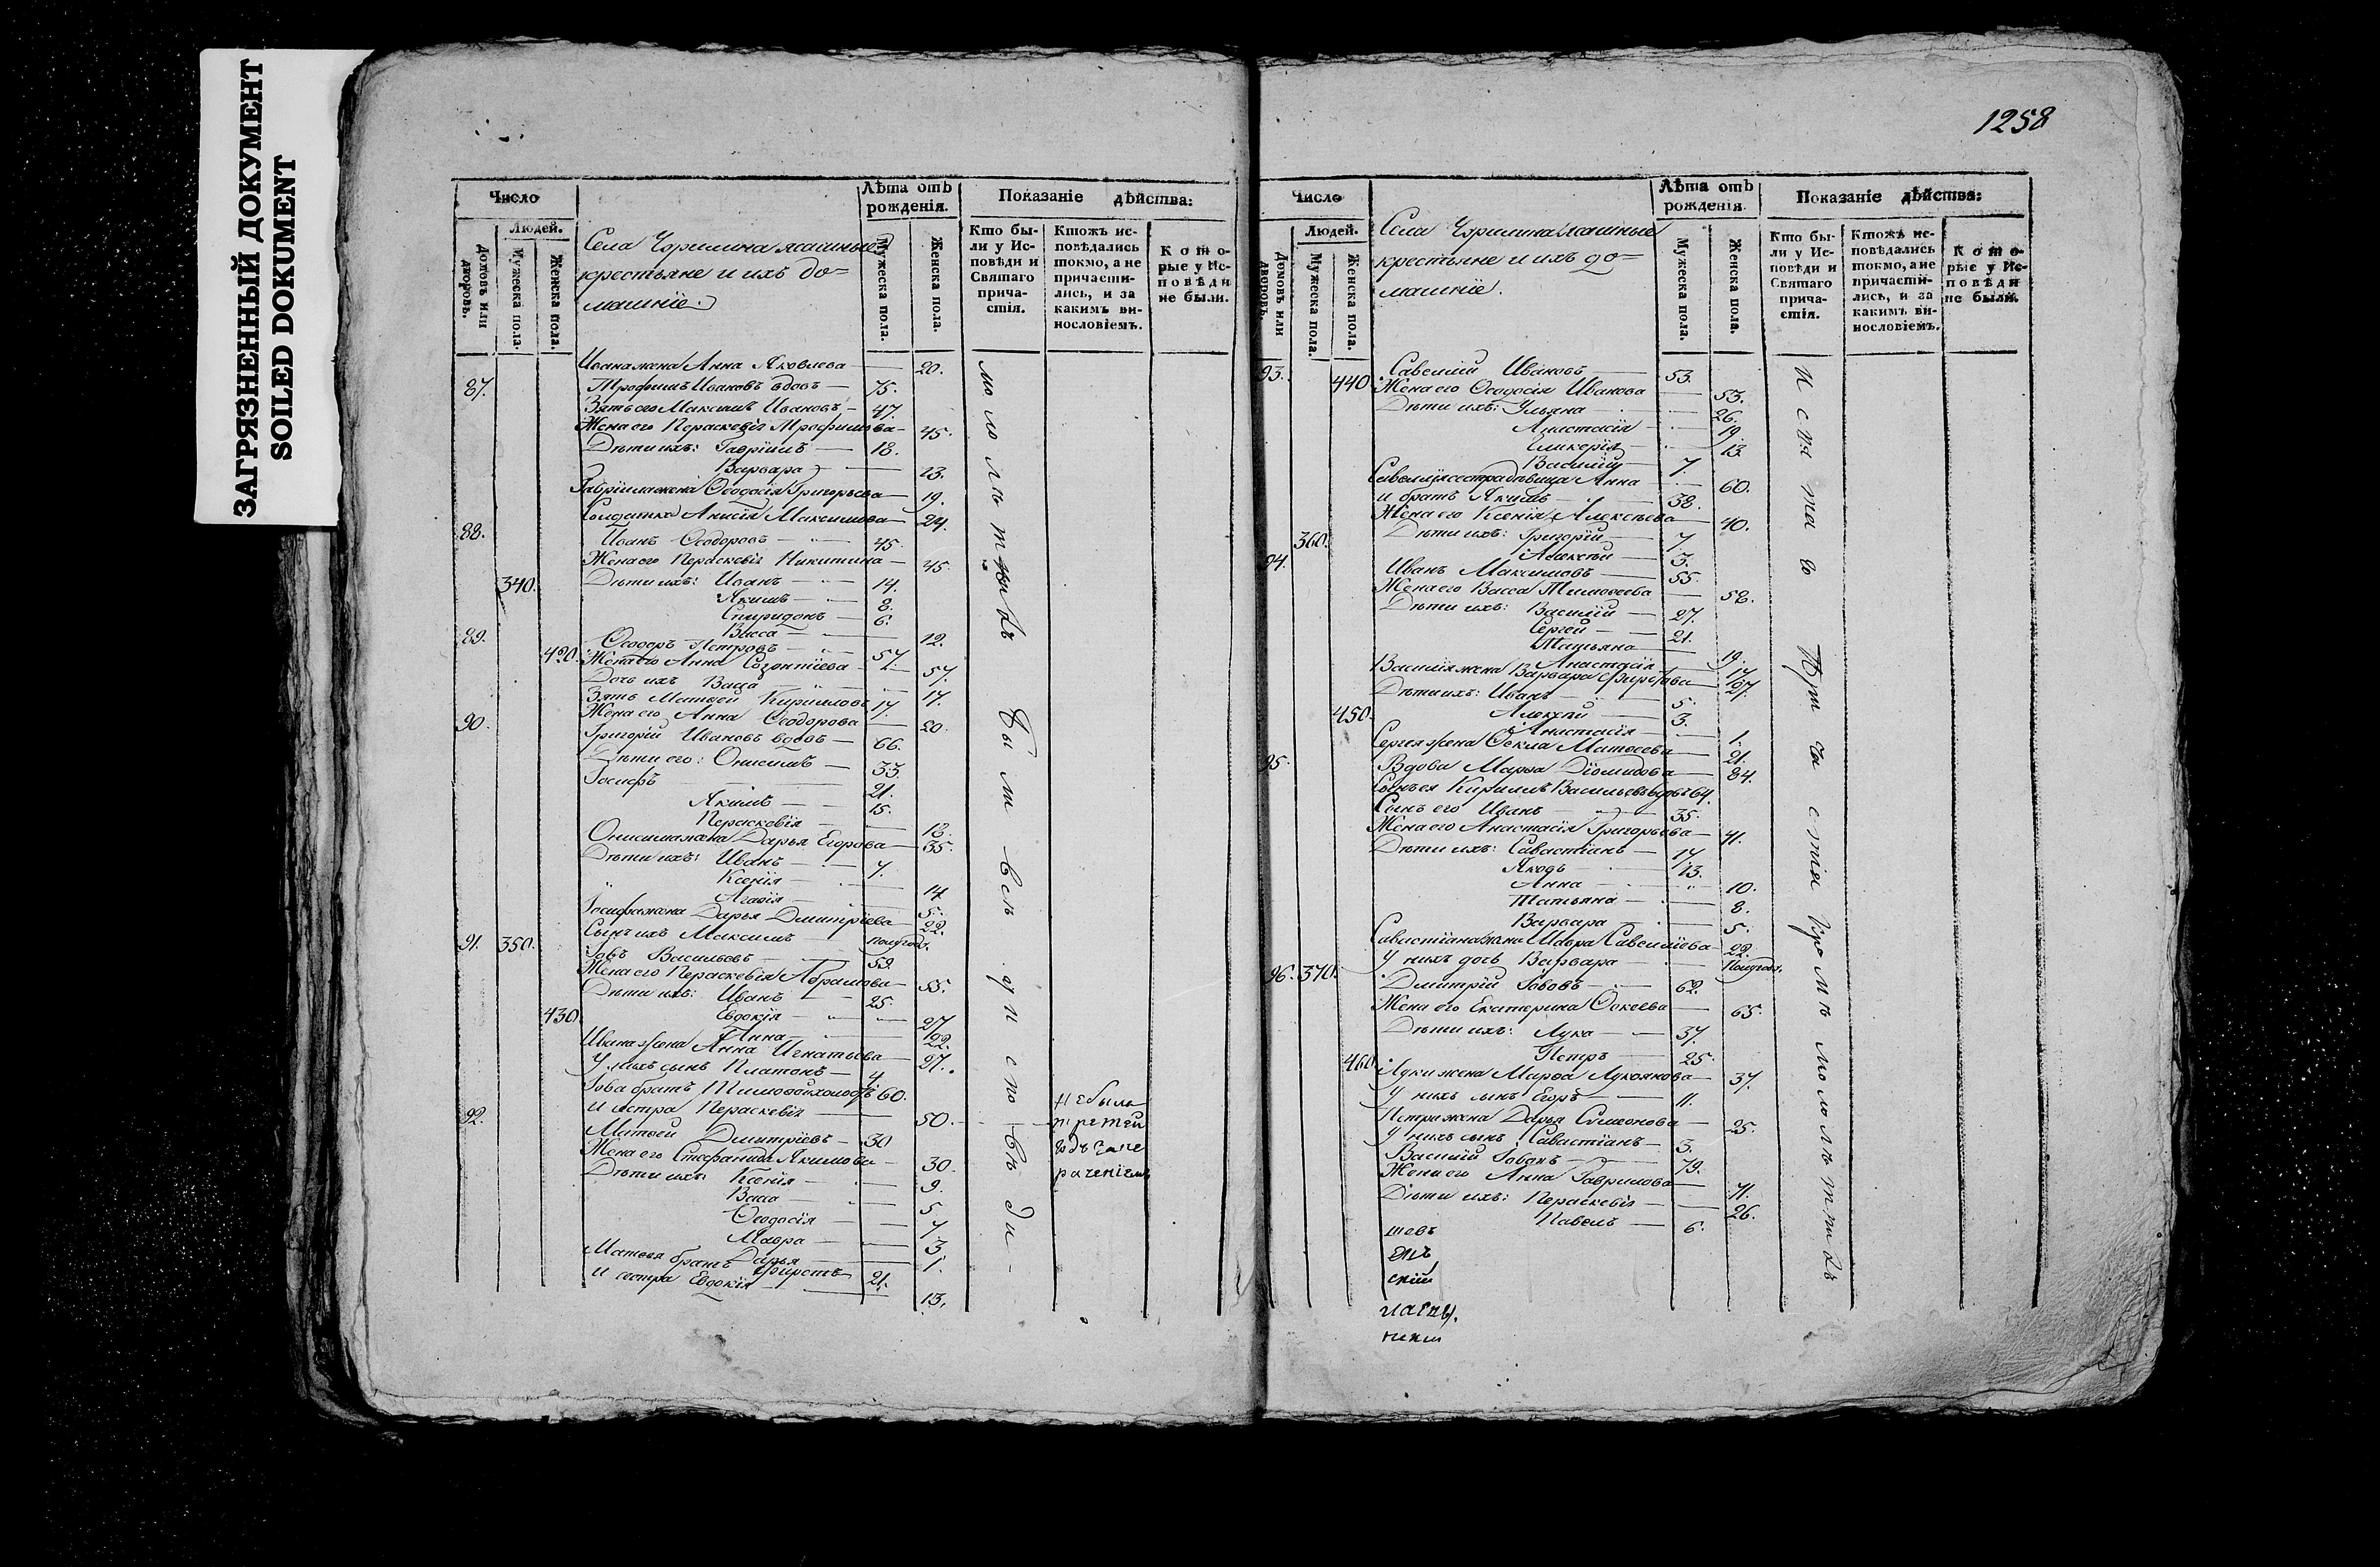 ЗАГРЯЗНЕННЫЙ ДОКУМЕНТ
SOILED DOKUMENT
Число
Людей.
Домовъ или дворовъ.
Мужеска пола.
Женска пола.
Села пашные
крестьяне и ихъ до=
машніе.
Лѣта отъ рожденія.
Мужеска пола.
Женска пола.
Показаніе дѣйства:
Кто бы-
ли у Ис-
повѣди и
Святаго
прича-
стія.
Ктожъ ис-
повѣдались
токмо, а не
причасти-
лись, и за
какимъ ви-
нословіемъ.
Кото-
рые у Ис-
повѣди
не были.
Ивана жена Анна Яковлева — 20.
87. Трофимъ Ивановъ вдовъ — 75.
Зять его Максимъ Ивановъ — 47.
Жена его Пераскевія Трофимова — 45.
Дѣти ихъ: Гавріилъ — 18.
Варвара — 13.
Гавріила жена Ѳеодосія Григорьева — 19.
Солдатка Анисія Максимова — 24.
88. Иванъ Ѳеодоровъ — 45.
Жена его Пераскевія Никитина — 45.
340. Дѣти ихъ: Иванъ — 14.
Якимъ — 8.
Спиридонъ — 6.
Васса — 12.
89. Ѳеодоръ Петровъ — 57.
420. Жена его Анна Созонтіева — 57.
Дочь ихъ Васса — 17.
Зять Матвей Кириловъ 17.
Жена его Анна Ѳеодорова — 20.
90. Григорій Ивановъ вдовъ — 66.
Дѣти его: Онисимъ — 33.
Іосифъ — 21.
Якимъ — 15.
Пераскевія — 18.
Онисима жена Дарья Егорова — 35.
Дѣти ихъ: Иванъ — 7.
Ксенія — 14
Агафія — 5.
Іосифа жена Дарья Дмитріева 22.
Сынъ ихъ Максимъ — полугод.
91. 350. Іовъ Васильевъ — 59.
Жена его Пераскевія Абрамова — 55.
Дѣти ихъ: Иванъ — 25.
430. Евдокія — 27
Анна — 22.
Ивана жена Анна Игнатьева — 27.
У нихъ сынъ Платонъ — 4
Іова братъ Тимоѳей холостъ 60.
И сестра Пераскевія — 50.
92. Матвей Дмитріевъ — 30
Жена его Стефанида Якимова — 30.
Дѣти ихъ: Ксенія — 9.
Васса — 5.
Ѳеодосія — 7
Мавра — 3
Дарья — 1.
Матвея братъ Фирстъ 21.
И сестра Евдокія — 13.
малолѣтнихъ
Были всѣ
у испо-
вѣди
не былъ
третей
годъ за не
раченіемъ
1258
Число
Людей.
Домовъ или дворовъ.
Мужеска пола.
Женска пола.
Села пашные
крестьяне и ихъ до=
машніе.
Лѣта отъ рожденія.
Мужеска пола.
Женска пола.
Показаніе дѣйства:
Кто бы-
ли у Ис-
повѣди и
Святаго
прича-
стія.
Ктожъ ис-
повѣдались
токмо, а не
причасти-
лись, и за
какимъ ви-
нословіемъ.
Кото-
рые у Ис-
повѣди
не были.
93. Савелій Ивановъ — 53.
440. Жена его Ѳеодосія Иванова — 53.
Дѣти ихъ: Ульяна — 26.
Анастасія — 19
Гликерія — 13
Василій — 7.
Савелія сестра дѣвица Анна — 60.
и братъ Якимъ — 38.
Жена его Ксенія Алексѣева — 40.
360. Дѣти ихъ: Григорій — 7
Алексѣй — 3.
94. Иванъ Максимовъ — 55.
Жена его Васса Тимоѳеева — 58.
Дѣти ихъ: Василій — 27.
Сергей — 21.
Татьяна — 19.
Анастасія — 17
Василія жена Варвара Фирстова — 27.
Дѣти ихъ: Иванъ — 5.
450. Алексѣй — 3.
Анастасія — 1.
Сергея жена Ѳекла Матвеева — 21.
95. Вдова Марѳа Діомидова — 84.
Сынъ ея Кирилъ Васильевъ вдовъ 64.
Сынъ его Иванъ — 35.
Жена его Анастасія Григорьева — 41.
Дѣти ихъ: Савастіанъ — 17.
Яковъ — 13.
Анна — 10.
Татьяна — 8.
Варвара — 5.
Савастіана жена Мавра Савеліева — 22.
У нихъ дочь Варвара — полугод.
96. 370. Дмитрій Іововъ — 62.
Жена его Екатерина — 65.
Дѣти ихъ: Лука — 37.
Петръ — 25.
460. Луки жена Марѳа Лукоянова — 37.
У нихъ сынъ Егоръ — 11.
Петра жена Дарья Симеонова — 25.
У нихъ сынъ Савастіанъ — 3.
Василій Іововъ — 79.
Жена его Анна Гаврилова — 71.
Дѣти ихъ: Пераскевія — 26.
Павелъ — 6.
И святаго Причастія кромѣ малолѣтнихъ